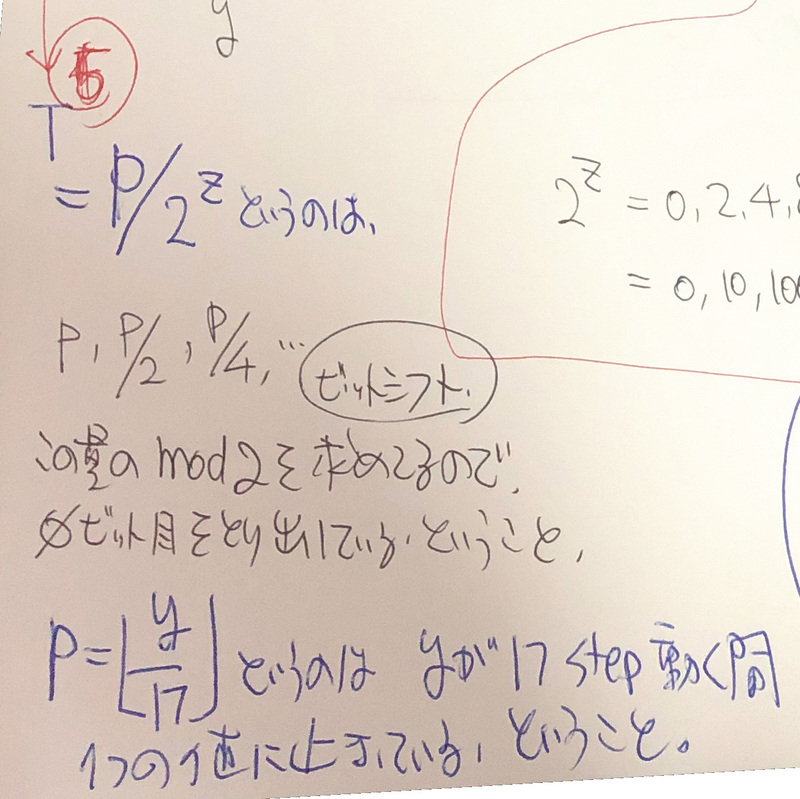 y
⑤
T
= P/2^z というのは、
2^z = 0, 2, 4,
= 0, 10, 100
P, P/2, P/4, …
ビットシフト.
この量の mod 2 を求めてるので、
0ビット目をとり出している. ということ.
P = ⌊y/17⌋ というのは yが17 step 動く間
1つの値に止まっている, ということ。